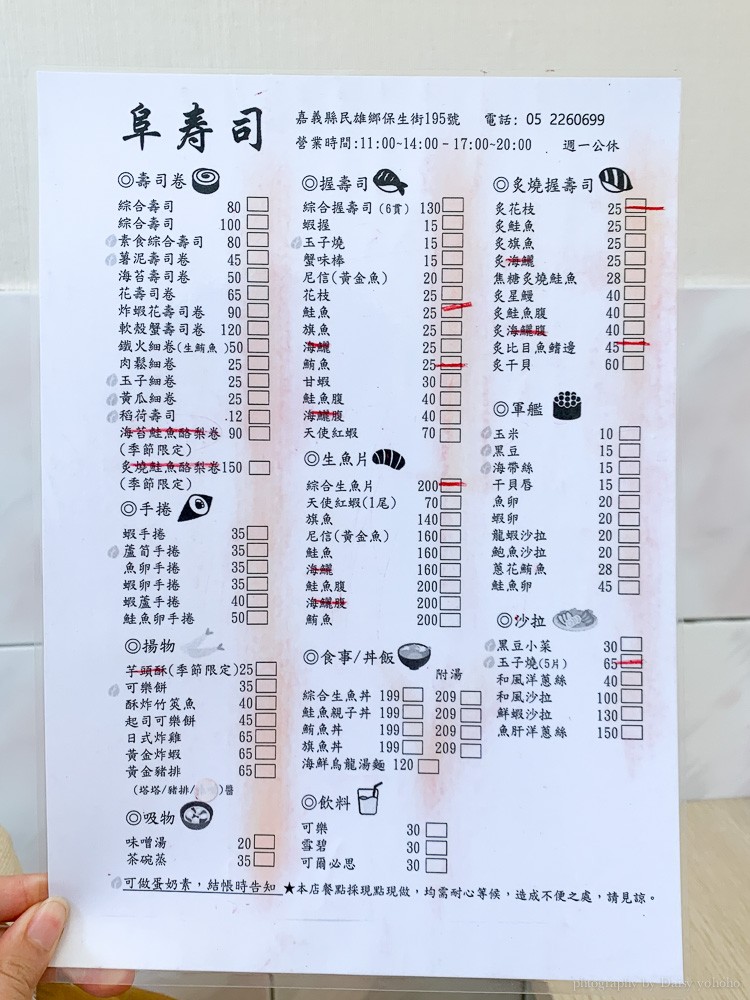 阜壽司
嘉義縣民雄鄉保生街195號 電話: 05 2260699
營業時間:11:00~14:00 - 17:00~20:00 週一公休
◎壽司卷
綜合壽司 80
綜合壽司 100
素食綜合壽司 80
薯泥壽司卷 45
海苔壽司卷 50
花壽司卷 65
炸蝦花壽司卷 90
軟殼蟹壽司卷 120
鐵火細卷(生鮪魚) 50
肉鬆細卷 25
玉子細卷 25
黃瓜細卷 25
稻荷壽司 .12
海苔鮭魚酪梨卷 90
(季節限定)
炙燒鮭魚酪梨卷 150
(季節限定)
◎手捲
蝦手捲 35
蘆筍手捲 35
魚卵手捲 35
蝦卵手捲 35
蝦蘆手捲 40
鮭魚卵手捲 50
◎揚物
芋頭酥(季節限定) 25
可樂餅 35
酥炸竹筴魚 40
起司可樂餅 45
日式炸雞 65
黃金炸蝦 65
黃金豬排 65
(塔塔/豬排/ )醬
◎吸物
味噌湯 20
茶碗蒸 35
◎握壽司
綜合握壽司(6貫) 130
蝦握 15
玉子燒 15
蟹味棒 15
尼信(黃金魚) 20
花枝 25
鮭魚 25
旗魚 25
海鱺 25
鮪魚 25
甘蝦 30
鮭魚腹 40
海鱺腹 40
天使紅蝦 70
◎生魚片
綜合生魚片 200
天使紅蝦(1尾) 70
旗魚 140
尼信(黃金魚) 160
鮭魚 160
海鱺 160
鮭魚腹 200
海鱺腹 200
鮪魚 200
◎食事/丼飯
附湯
綜合生魚丼 199 209
鮭魚親子丼 199 209
鮪魚丼 199 209
旗魚丼 199 209
海鮮烏龍湯麵 120
◎飲料
可樂 30
雪碧 30
可爾必思 30
◎炙燒握壽司
炙花枝 25
炙鮭魚 25
炙旗魚 25
炙海鱺 25
焦糖炙燒鮭魚 28
炙星鰻 40
炙鮭魚腹 40
炙海鱺腹 40
炙比目魚鰭邊 45
炙干貝 60
◎軍艦
玉米 10
黑豆 15
海帶絲 15
干貝唇 15
魚卵 20
蝦卵 20
龍蝦沙拉 20
鮑魚沙拉 20
蔥花鮪魚 28
鮭魚卵 45
◎沙拉
黑豆小菜 30
玉子燒(5片) 65
和風洋蔥絲 40
和風沙拉 100
鮮蝦沙拉 130
魚肝洋蔥絲 150
可做蛋奶素，結帳時告知 ★本店餐點採現點現做，均需耐心等候，造成不便之處，請見諒。
photography by Daisy yohoho